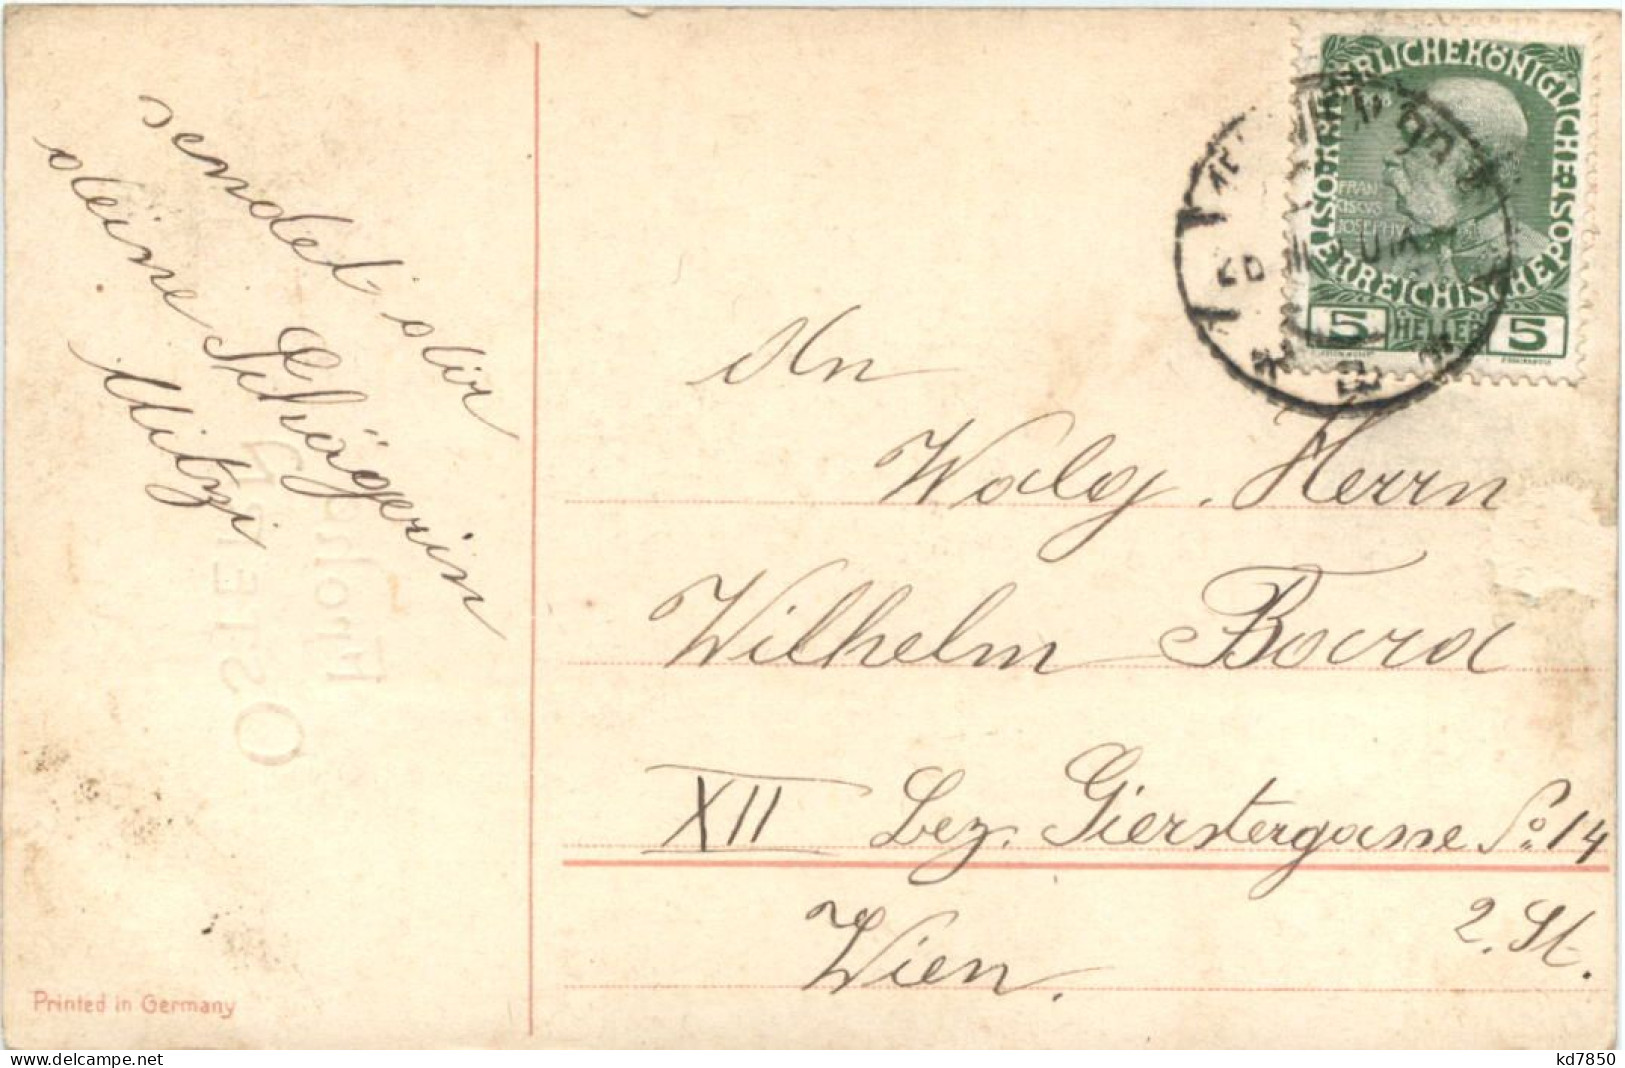 sendet dir
deine Schwägerin
Mitzi
An
Herrn
Wilhelm
XII Bez. Gierstergasse No 14
2. St.
Wien.
KAISERLICHE KÖNIGLICHE
ÖSTERREICHISCHE POST
FRAN
CISCVS
IOSEPHVS
5 HELLER 5
Fröhliche
OSTERN
Printed in Germany
www.delcampe.net
kd7850